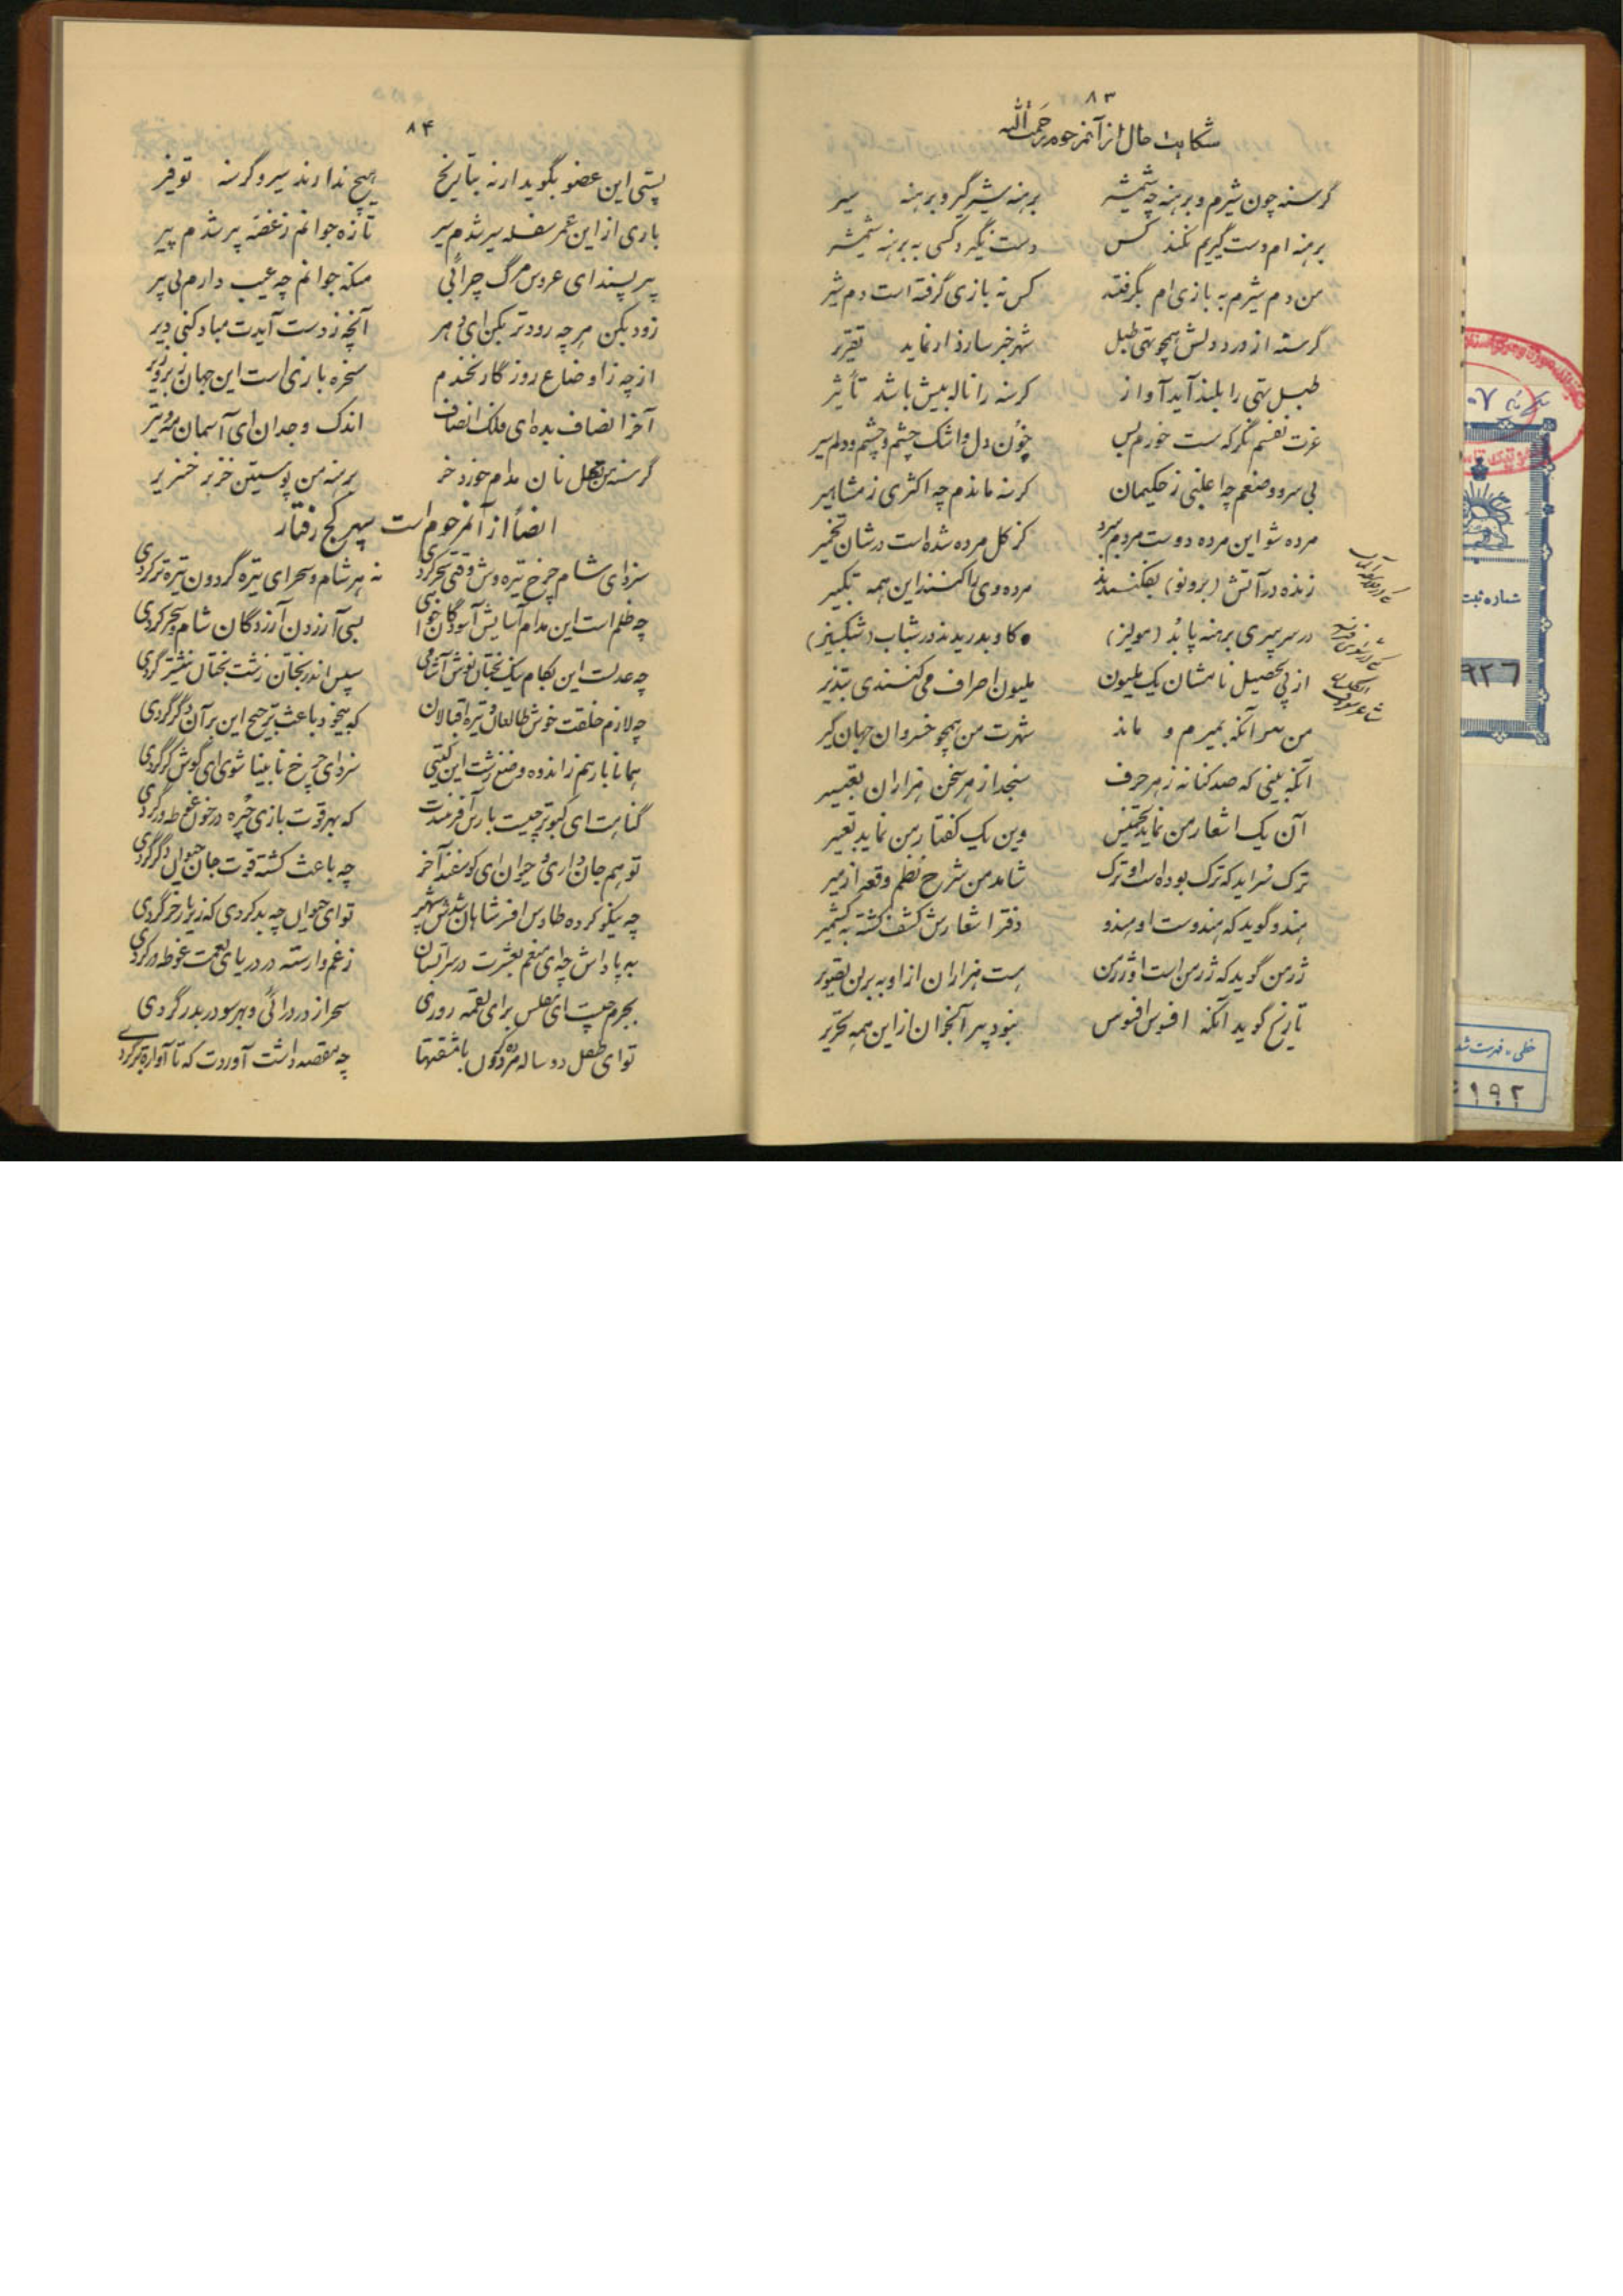 ۸۳
شکایت حال از آنمرحوم رحمت الله
گرسنه چون شیرم و برهنه چه شمشیر برهنه شیر گیر و برهنه سیر
برهنه ام دست گیریم نکند کس دست نگیرد کسی به برهنه شمشیر
من دم شیرم به بازی ام بگرفته کس نه بازی گرفته است دم شیر
گرسنه از درد دلش همچو تهی طبل شهر خبر سازد ار نماید تقریر
طبل تهی را بلند آید آواز گرسنه را ناله بیش باشد تأثیر
عزت نفسم نگر که هست خورم بس خون دل و اشک چشم و چشم و دلم سیر
بی سر و وضعم چه اغلبی ز حکیمان گرسنه ماندم چه اکثری ز مشاهیر
مرده شو این مرده دوست مردم سرد کز گل مرده شده است درشان تخمیر
زنده در آتش (برونو) بفکنندند مرده وی را کنند این همه تکبیر
در سر پیری برهنه پا بُد (مولیر) گاو بدریدند در شباب (شکسپیر)
از پی تحصیل نامشان یک ملیون ملیون اصراف می کنندی تبذیر
من پس آنکه بمیرم و ماند شهرت من همچو خسروان جهان گیر
آنکه بینی که صد کنانه ز هر حرف سنجد از هر سخن هزاران تعبیر
آن یک اشعار من نماید تخمیس وین یک گفتار من نماید تعبیر
ترک سراید که ترک بوده است او ترک شاهد من شرح نظم وقعه ازمیر
هندو گوید که هندوست او هندو دفتر اشعارش کشف گشته به کشمیر
ژرمن گوید که ژرمن است او ژرمن هست هزاران از او به برلن تصویر
تاریخ گوید آنکه افسوس افسوس نبود بهر آنجوان از این همه تحریر
شماره ثبت
خطی . فهرست شده
۸۴
پستی این عضو بگوید ار نه بتاریخ هیچ ندارند سیر و گرسنه توفر
باری از این عمر سفله سیر شدم سیر تازه جوانم ز غصه پیر شدم پیر
پیر پسند ای عروس مرگ چرائی منکه جوانم چه عیب دارم بی پیر
زود بکن هر چه زودتر بکن ای دهر آنچه ز دست آیدت مباد کنی دیر
از چه ز اوضاع روزگار نخندم سخره بازی است این جهان زبر و زیر
آخر انصاف بده ای فلک انصاف اندک وجدان ای آسمان مزور
گرسنه من بهل نان مدام خورد خر برهنه من پوستین خز بر خنزیر
ایضاً از آنمرحوم است سپهر کج رفتار
سزد ای شام چرخ تیره وش وقتی سحر گردی نه هر شام و سحر ای تیره گردون تیره تر گردی
چه ظلم است این مدام آسایش آسودگان خواهی پی آزردن آزردگان شام و سحر گردی
چه عدلست این بکام نیک بختان نوش آشامی سپس اندر بختان زشت بختان نیشتر گردی
چه لازم خلقت خوش طالعان و تیره اقبالان که بیخود باعث ترجیح این بر آن دگر گردی
همانا بارهم زاندوه وضع زشت این گیتی سزد ای چرخ نابینا شوی ای گوش کر گردی
گناهت ای کبوتر چیست بار آفرینندت که بهر قوت بازی خُره در خون غوطه ور گردی
تو هم جان داری و حیوان ای گوسفند آخر چه باعث کشته قوت جان حیوان دگر گردی
چه نیکو کرده طاوس افسر شاهان شدش شهپر تو ای حیوان چه بد کردی که زیر بار خر گردی
به پاداش چه ای منعم بعشرت در سر آبستان ز غم وارسته در دریای نعمت غوطه ور گردی
بجرم چیست ای مفلس برای لقمه روزی سحر از در درائی و بهر سو در بدر گردی
تو ای طفل دو ساله مرده گون با مشقتها چه مقصد داشت آوردت که تا آواره تر گردی